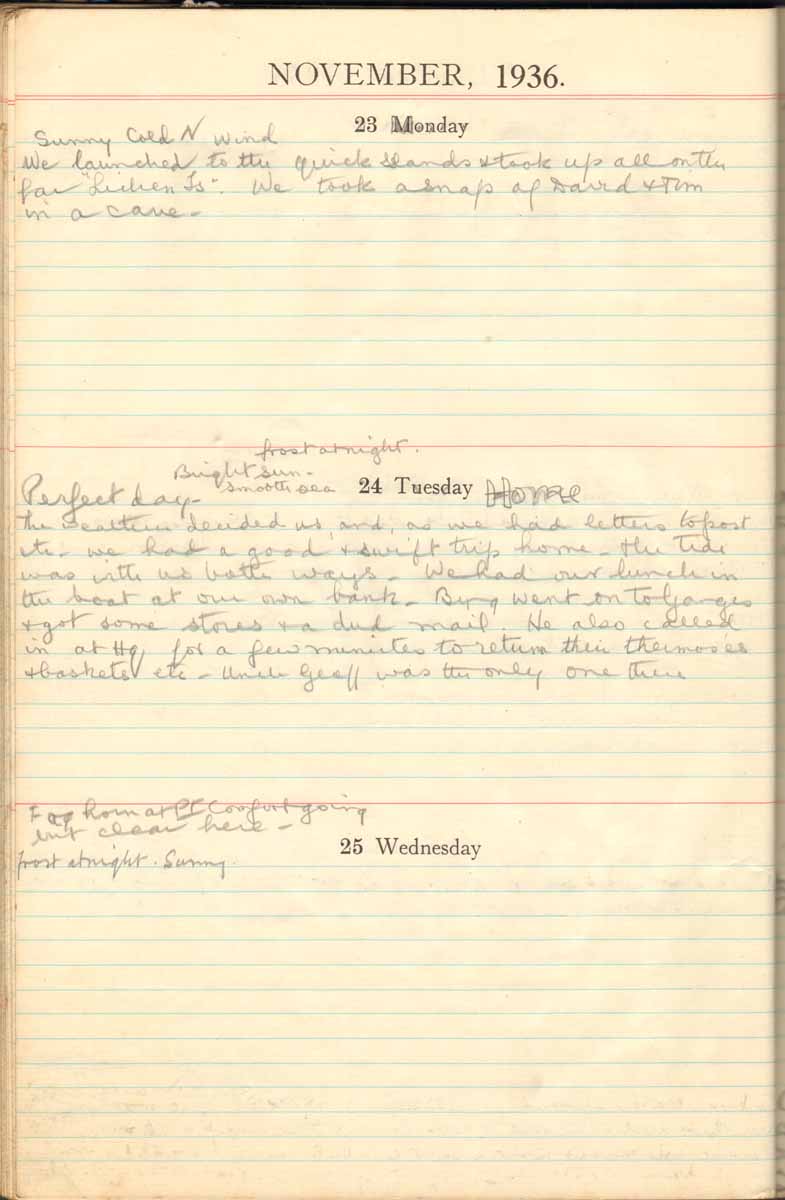 NOVEMBER, 1936.
23 Monday
Sunny Cold N Wind
We launched to the quick & took up all on the
far "Lichen Is". We took a snap of David & Tim
in a cave -
frost at night.
Bright sun -
smooth sea
24 Tuesday
Home
Perfect day -
The weather decided us, and, as we had letters to post
etc - we had a good & swift trip home - the tide
was with us both ways - We had our lunch in
the boat at our own bank - went on to Ganges
& got some stores & a dud mail. He also called
in at Hq for a few minutes to return their thermoses
& baskets etc - Uncle Geoff was the only one there
Fog horn at Pt Comfort going
but clear here -
25 Wednesday
frost at night. Sunny.